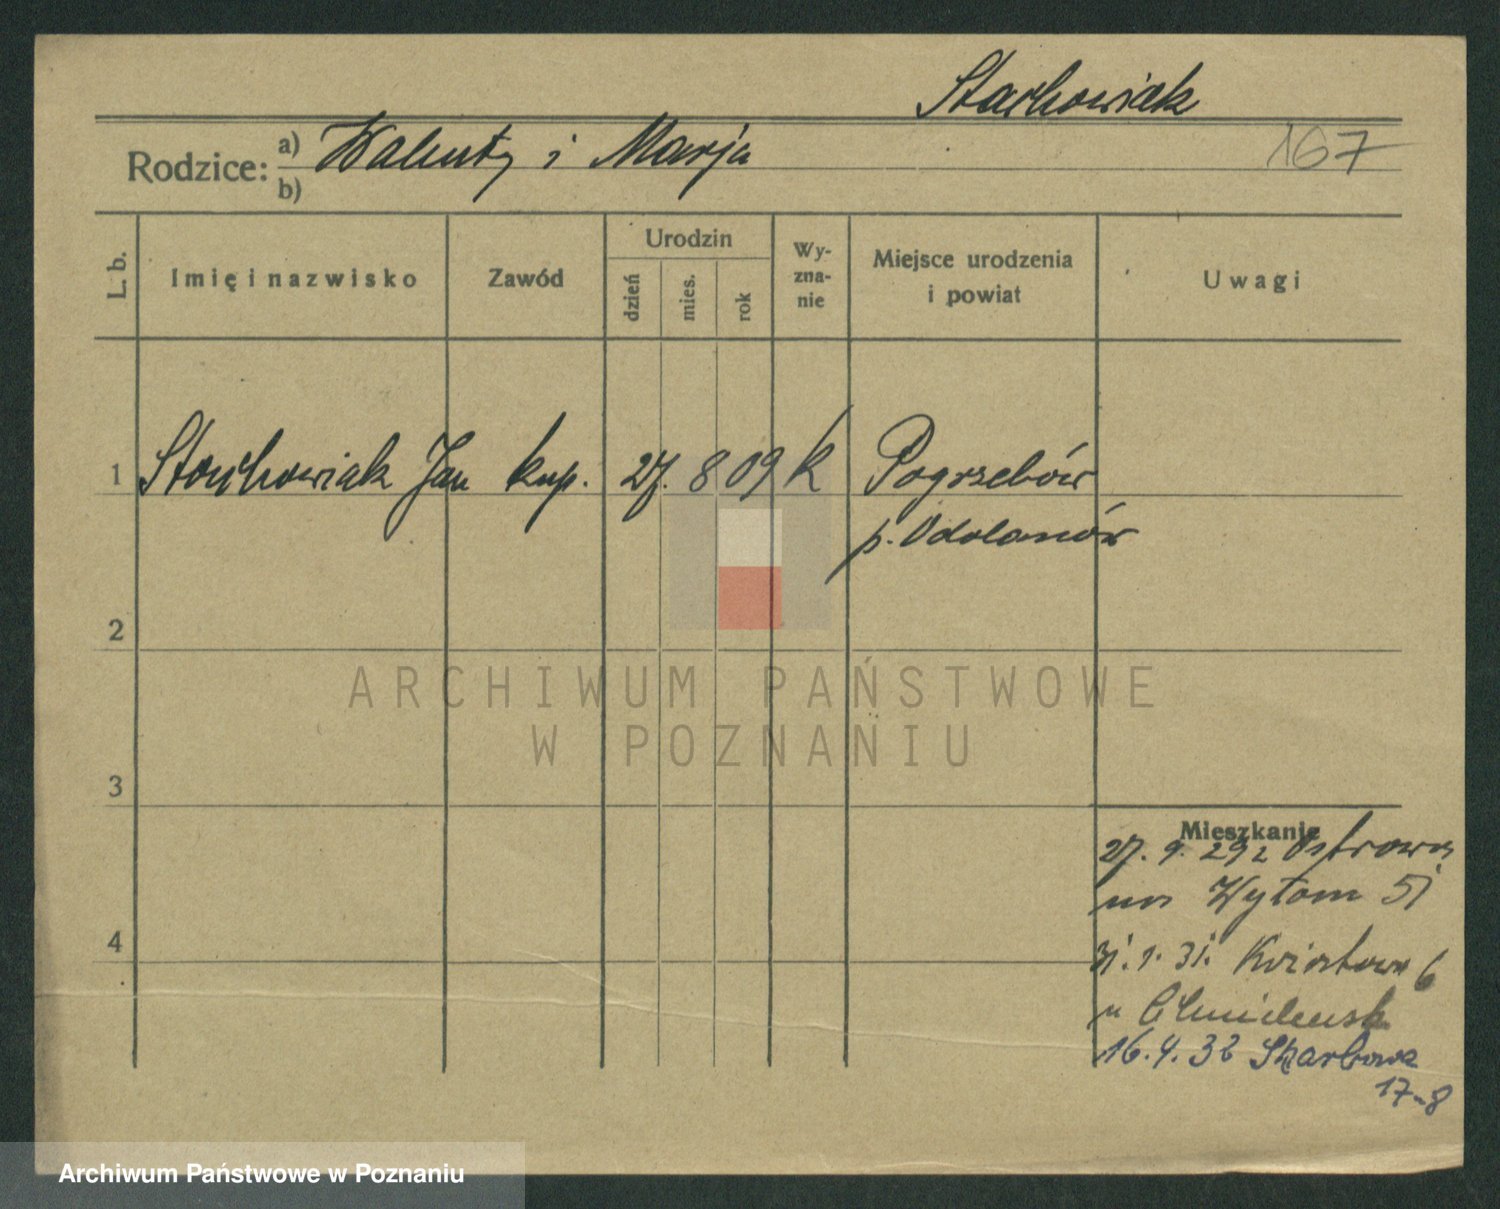 Stachowiak
167
Rodzice: a) Walenty i Marja
b)
L. b.
Imię i nazwisko
Zawód
Urodzin
dzień
mies.
rok
Wy-
zna-
nie
Miejsce urodzenia
i powiat
Uwagi
1 Stachowiak Jan kup. 27. 8 09 k Pogrzebów
p. Odolanów
2
3
4
Mieszkanie
27. 9. 29 z Ostrowa
Wytom 51
31. 1. 31. Kwiatowa 6
u
16. 4. 32 Skarbowa
17-8
ARCHIWUM PAŃSTWOWE
W POZNANIU
Archiwum Państwowe w Poznaniu